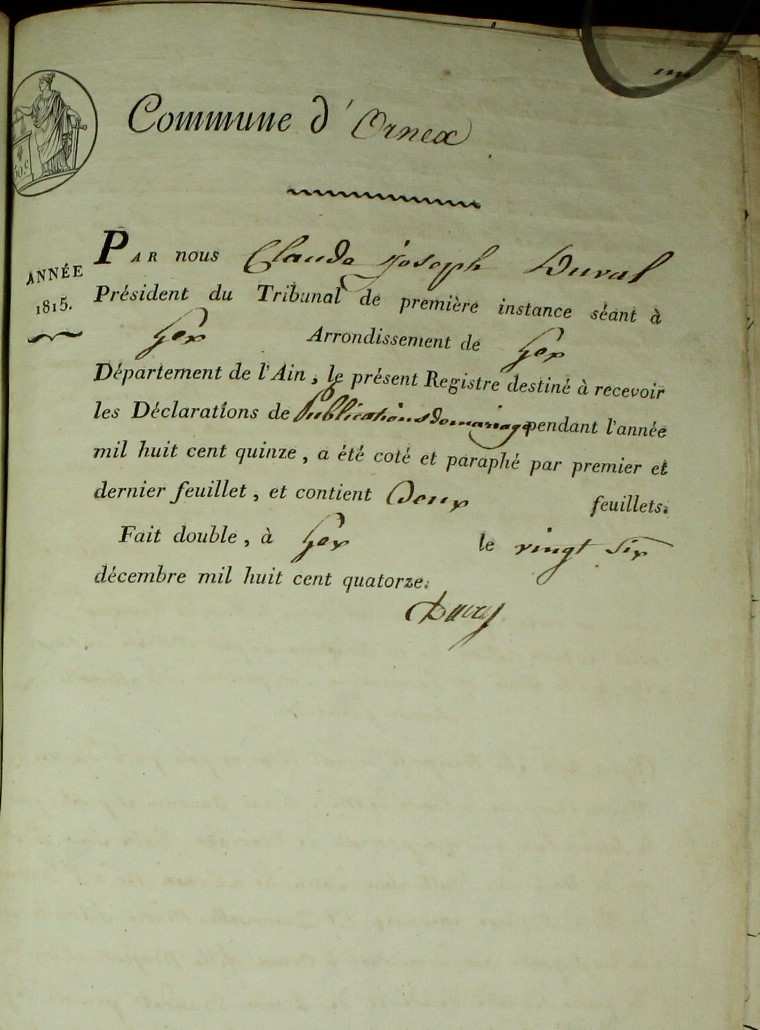 Commune d'Ornex
ANNÉE
1815.
PAR nous Claude joseph Duval
Président du Tribunal de première instance séant à
Gex Arrondissement de Gex
Département de l'Ain, le présent Registre destiné à recevoir
les Déclarations de Publications de mariage pendant l'année
mil huit cent quinze, a été coté et paraphé par premier et
dernier feuillet, et contient Deux feuillets.
Fait double, à Gex le vingt Six
décembre mil huit cent quatorze.
Duval